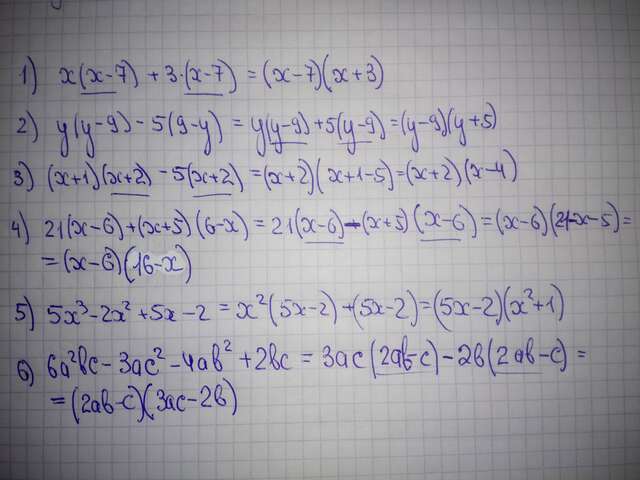 1) x(x-7) + 3·(x-7) = (x-7)(x+3)
2) y(y-9) - 5(9-y) = y(y-9) + 5(y-9) = (y-9)(y+5)
3) (x+1)(x+2) - 5(x+2) = (x+2)(x+1-5) = (x+2)(x-4)
4) 21(x-6) + (x+5)(6-x) = 21(x-6) - (x+5)(x-6) = (x-6)(21-x-5) =
= (x-6)(16-x)
5) 5x³ - 2x² + 5x - 2 = x²(5x-2) + (5x-2) = (5x-2)(x²+1)
6) 6a²bc - 3ac² - 4ab² + 2bc = 3ac(2ab-c) - 2b(2ab-c) =
= (2ab-c)(3ac-2b)